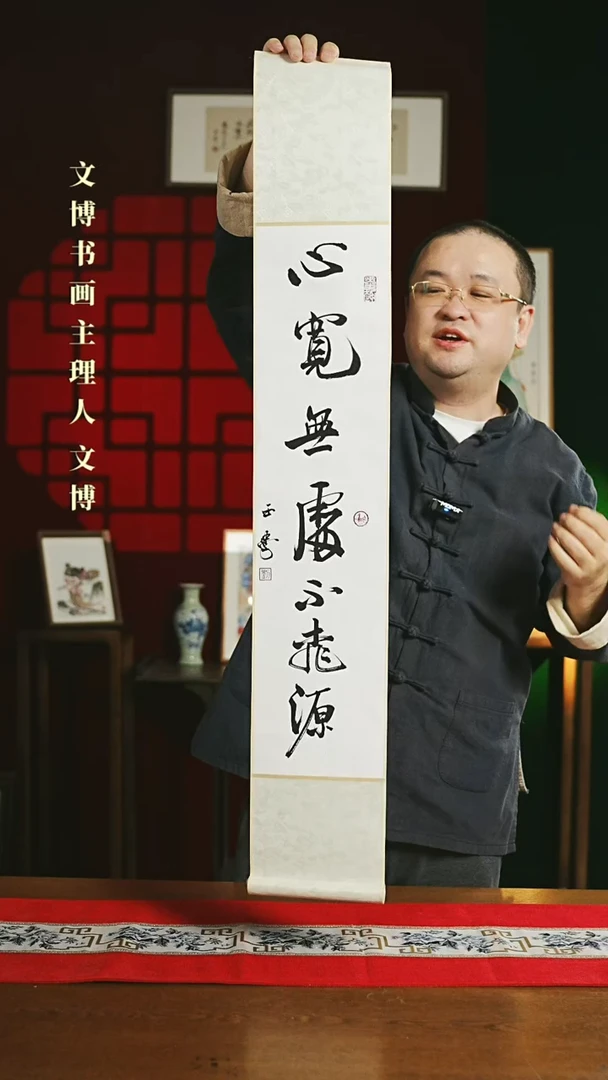 文博书画主理人 文博
心寬無處不桃源